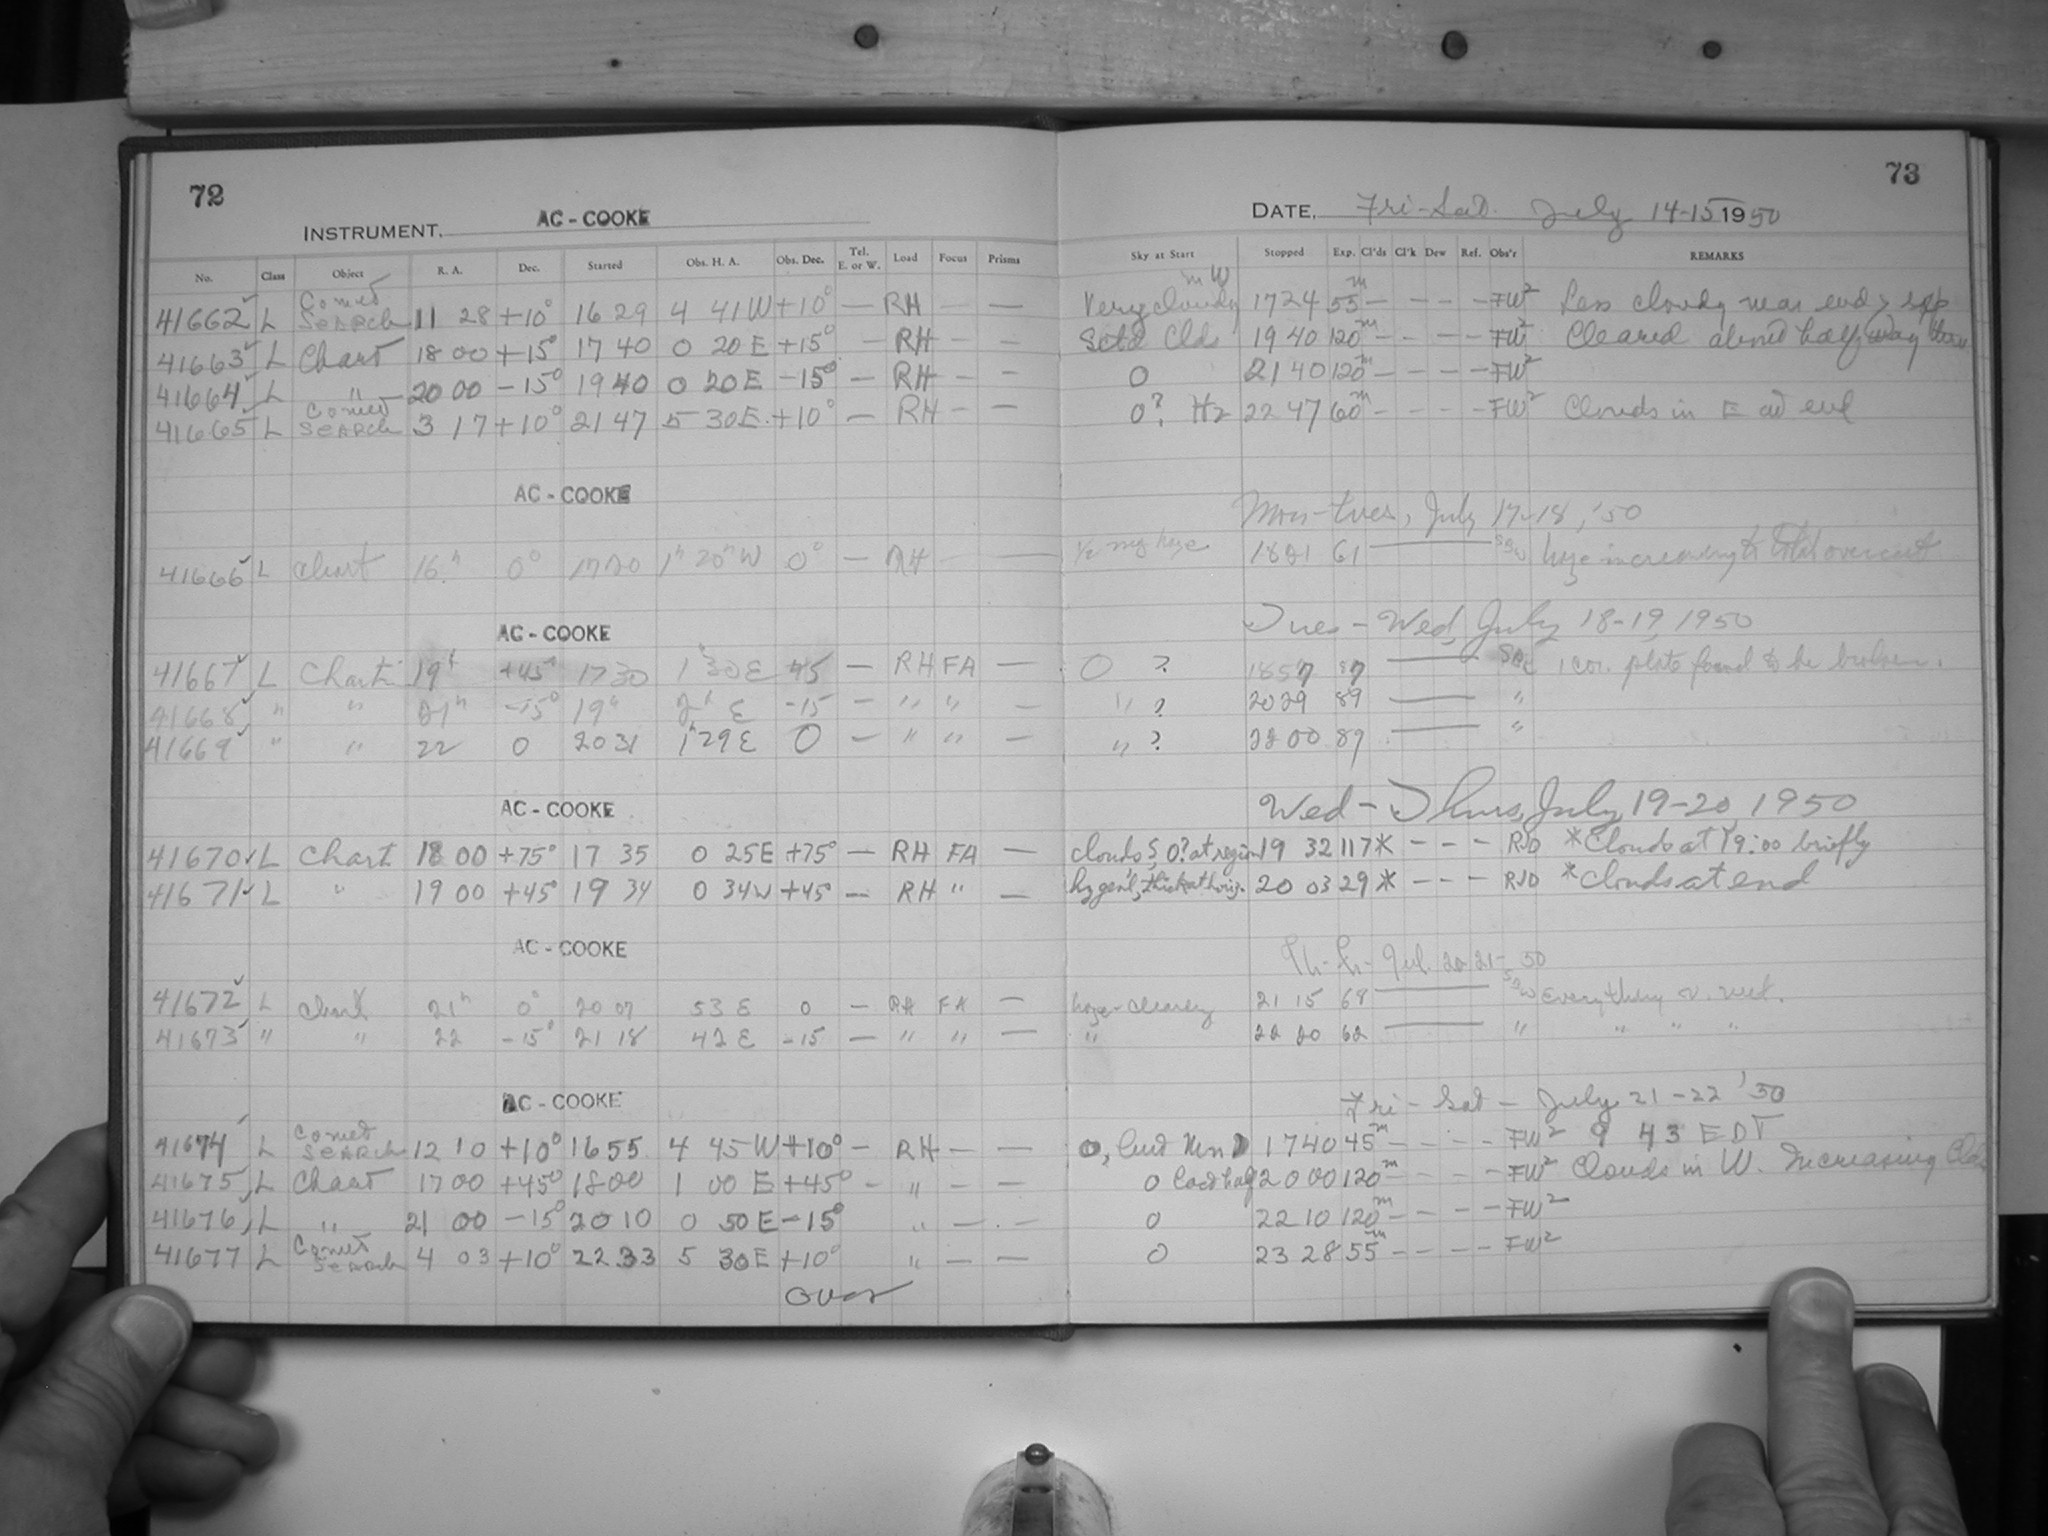 72
INSTRUMENT. AC - COOKE
No. Class Object R. A. Dec. Started Obs. H. A. Obs. Dec. Tel. E. or W. Load Focus Prisms
41662 L Comet Search 11 28 +10° 16 29 4 41 W +10° — RH — —
41663 L Chart 18 00 +15° 17 40 0 20 E +15° — RH — —
41664 L " 20 00 -15° 19 40 0 20 E -15° — RH — —
41665 L Comet Search 3 17 +10° 21 47 5 30 E +10° — RH — —
AC - COOKE
41666 L Chart 16h 0° 17 20 1h 20m W 0° — RH — —
AC - COOKE
41667 L Chart 19h +45° 17 30 1h 30 E 45 — RH FA —
41668 " " 21h -15° 19h 2h E -15 — " " —
41669 " " 22 0 20 31 1h 29 E 0 — " " —
AC - COOKE
41670 L Chart 18 00 +75° 17 35 0 25 E +75° — RH FA —
41671 L " 19 00 +45° 19 34 0 34 W +45° — RH " —
AC - COOKE
41672 L Chart 21h 0° 20 07 53 E 0 — RH FA —
41673 " " 22 -15° 21 18 42 E -15 — " " —
AC - COOKE
41674 L Comet Search 12 10 +10° 16 55 4 45 W +10° — RH — —
41675 L Chart 17 00 +45° 18 00 1 00 E +45° — " — —
41676 L " 21 00 -15° 20 10 0 50 E -15° " — —
41677 L Comet Search 4 03 +10° 22 33 5 30 E +10° " — —
Over
73
DATE, Fri-Sat. July 14-15 1950
Sky at Start Stopped Exp. Cl'ds Cl'k Dew Ref. Obs'r REMARKS
Very cloudy in W 17 24 55m — — — — FW2 Less cloudy near end
Sctd Clds 19 40 120m — — — — FW2 Cleared about half way
0 21 40 120m — — — — FW2
0? Hz 22 47 60m — — — — FW2 Clouds in E at end
Mon-Tues, July 17-18, '50
1/2 haze 18 21 61 — haze increasing to total overcast
Tues - Wed, July 18-19, 1950
0 ? 18 57 87 — 1 cor. plate found to be broken.
" ? 20 29 89 — "
" ? 22 00 89 — "
Wed - Thurs, July 19-20, 1950
clouds S, 0? at region 19 32 117 * — — — RJD *Clouds at 19:00 briefly
hz gen'l, thick at horiz. 20 03 29 * — — — RJD *Clouds at end
Th-Fr- Jul. 20 21 - 50
haze - clearing 21 15 68 — Everything v. wet.
" 22 20 62 — " " " "
Fri - Sat - July 21 - 22 '50
0, 17 40 45m — — — — FW2 9 43 EDT
0 20 00 120m — — — — FW2 Clouds in W. Increasing Clds
0 22 10 120m — — — — FW2
0 23 28 55m — — — — FW2